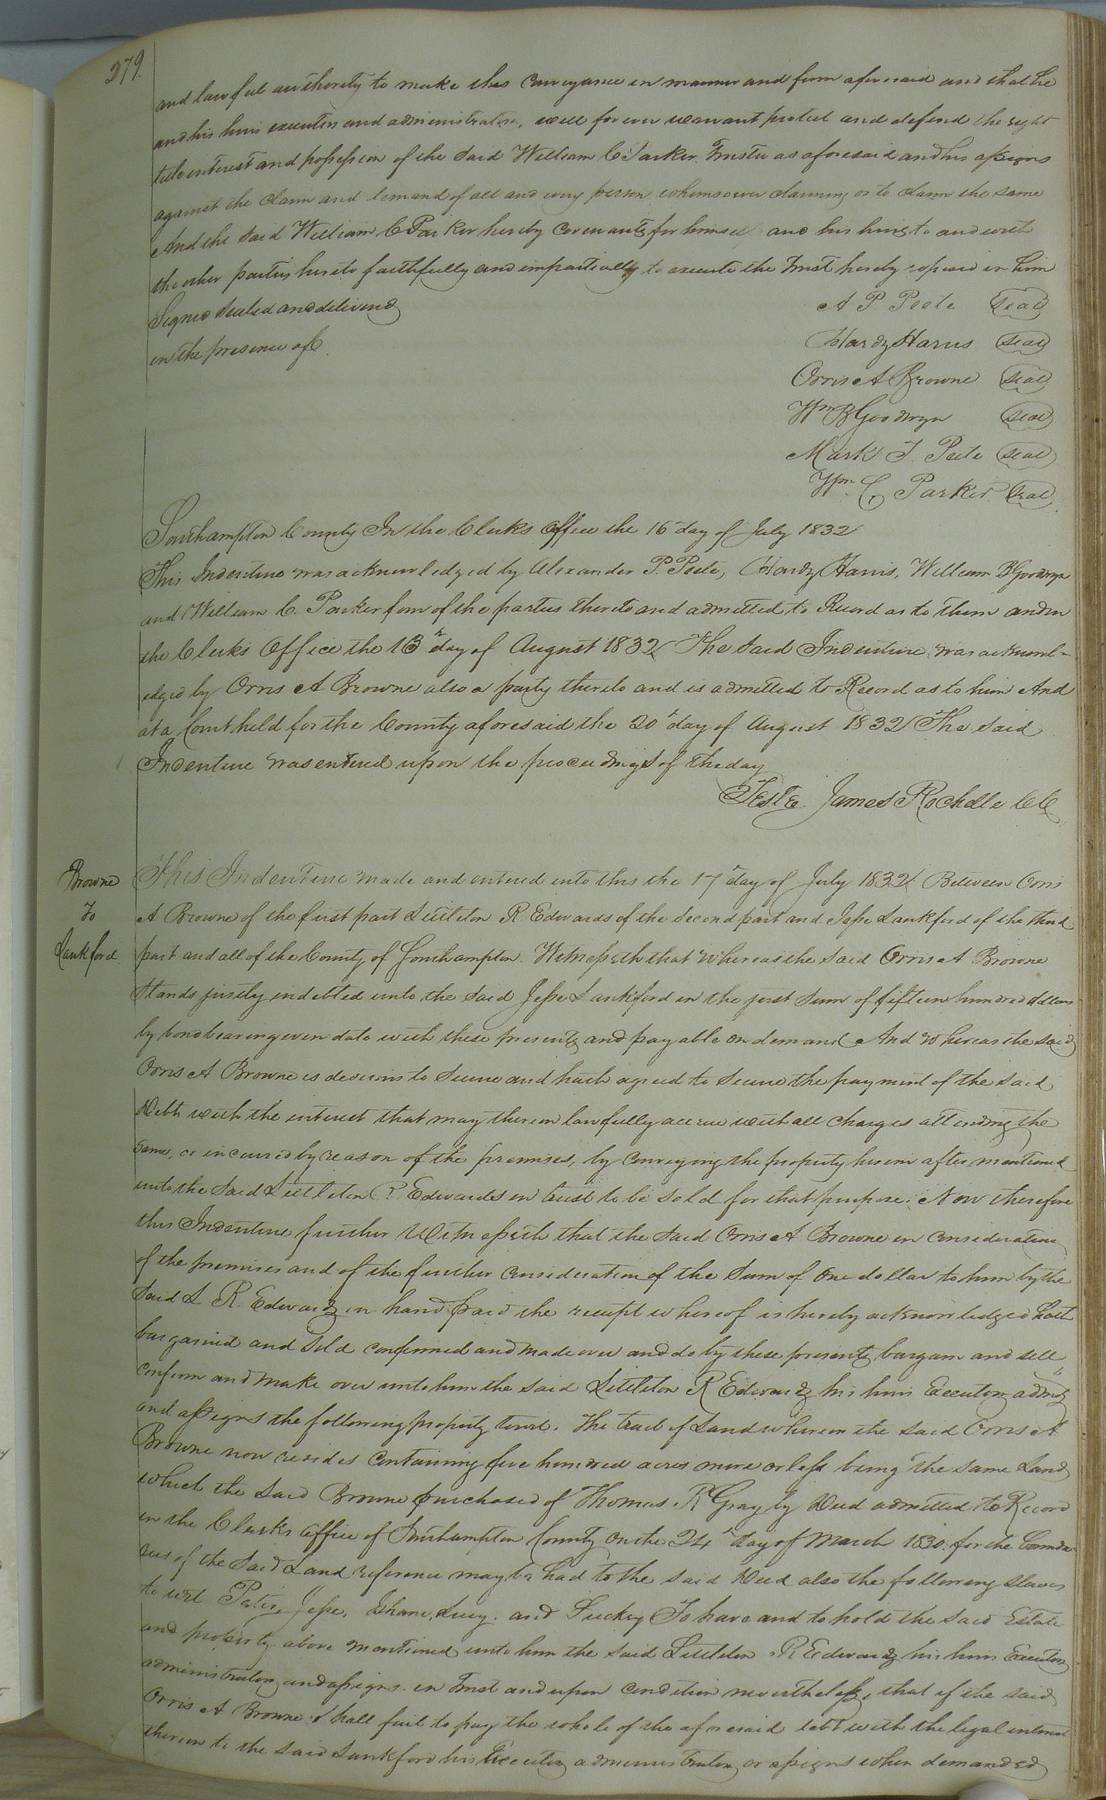 279.
and lawful authority to make this conveyance in manner and form aforesaid and that he
and his heirs executors and administrators, will forever warrant protect and defend the right
title interest and possession of the said William C Parker Trustee as aforesaid and his assigns
against the claim and demand of all and every person whomsoever claiming or to claim the same
And the said William C Parker hereby covenants for himself and his heirs to and with
the other parties hereto faithfully and impartially to execute the Trust hereby reposed in him
Signed Sealed and delivered
in the presence of
A P Peete Seal
Hardy Harris Seal
Orris A Browne Seal
Wm B Goodwyn Seal
Mark J. Peete Seal
Wm. C, Parker Seal
Southampton County In the Clerks Office the 16th day of July 1832
This Indenture was acknowledged by Alexander P. Peete, Hardy Harris, William B Goodwyn
and William C. Parker four of the parties thereto and admitted to Record as to them and in
the Clerks Office the 13th day of August 1832 The said Indenture was acknowl-
edged by Orris A Browne also a party thereto and is admitted to Record as to him And
at a Court held for the County aforesaid the 20th day of August 1832 The said
Indenture was entered upon the proceedings of the day
Teste James Rochelle CC
Browne
To
Lankford
This Indenture made and entered into this the 17th day of July 1832 Between Orris
A Browne of the first part Littleton R Edwards of the second part and Jesse Lankford of the third
part and all of the County of Southampton. Witnesseth that whereas the said Orris A Browne
Stands justly indebted unto the said Jesse Lankford in the just sum of fifteen hundred dollars
by bond bearing even date with these presents and payable on demand And whereas the said
Orris A Browne is desirous to secure and hath agreed to secure the payment of the said
Debt with the interest that may thereon lawfully accrue with all charges attending the
same, or incurred by reason of the premises, by conveying the property herein after mentioned
unto the said Littleton R. Edwards in trust to be sold for that purpose. Now therefore
this Indenture further Witnesseth that the said Orris A Browne in consideration
of the premises and of the further consideration of the sum of one dollar to him by the
said L R. Edwards in hand paid the receipt whereof is hereby acknowledged hath
bargained and sold confirmed and made over and do by these presents bargain and sell,
confirm and make over unto him the said Littleton R Edwards his heirs Executors admrs
and assigns the following property towit. The tract of Land whereon the said Orris A
Browne now resides containing five hundred acres more or less being the same Land
which the said Browne purchased of Thomas R Gray by Deed admitted to Record
in the Clerks office of Southampton County on the 24th day of March 1830. for the bounda
ries of the said Land reference may be had to the said Deed also the following slaves
to wit Peter, Jesse, Lucy. and Suckey To have and to hold the said Estate
and property above mentioned unto him the said Littleton R Edwards his heirs Executors
administrators and assigns. in Trust and upon condition nevertheless, that if the said
Orris A Browne shall fail to pay the whole of the aforesaid debt with the legal interest
thereon to the said Lankford his Executors administrators or assigns when demanded